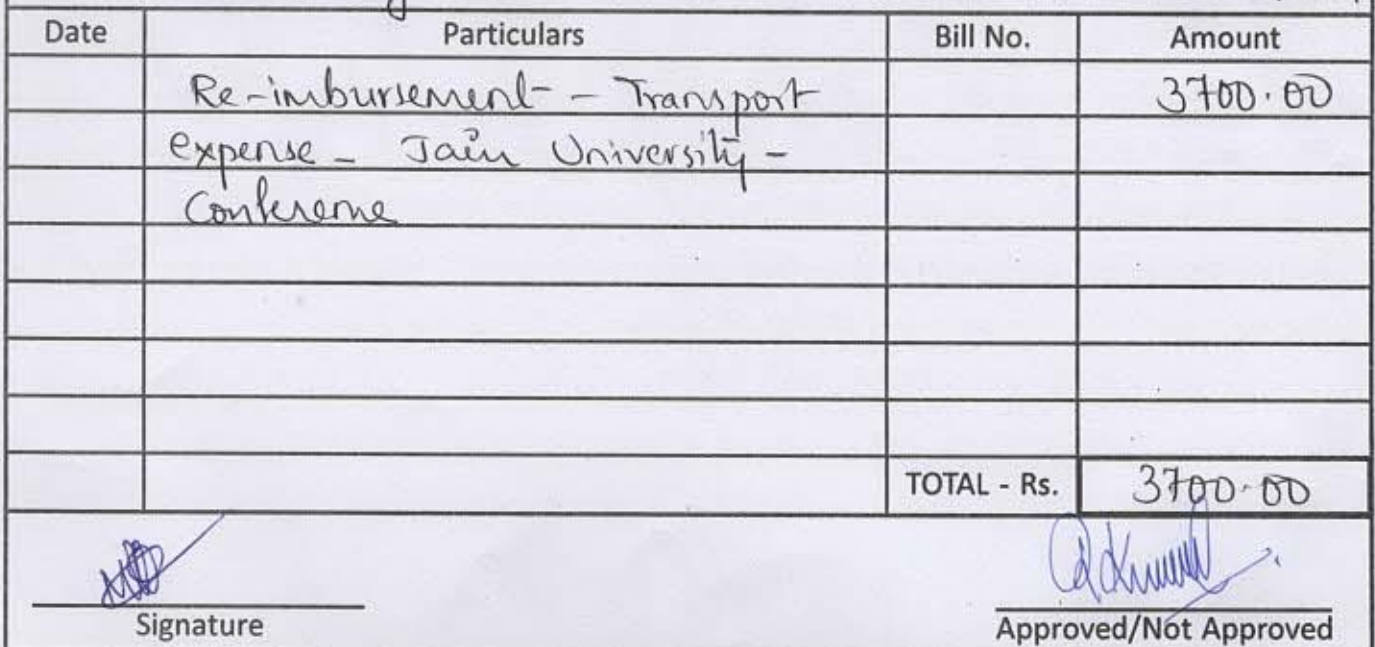 Date Particulars Bill No. Amount
Re-imbursement - Transport 3700.00
expense - Jain University -
Conference
TOTAL - Rs. 3700.00
Signature Approved/Not Approved